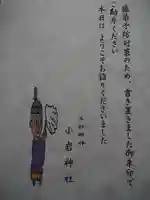 感染予防対策のため、書き置きました御朱印で
ご勘弁ください
本日は ようこそお詣りくださいました
小岩神社